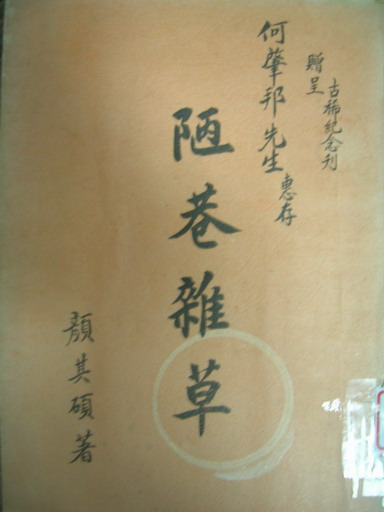 古稀紀念刊
贈呈
何肇邦先生惠存
陋巷雜草
顏其碩著